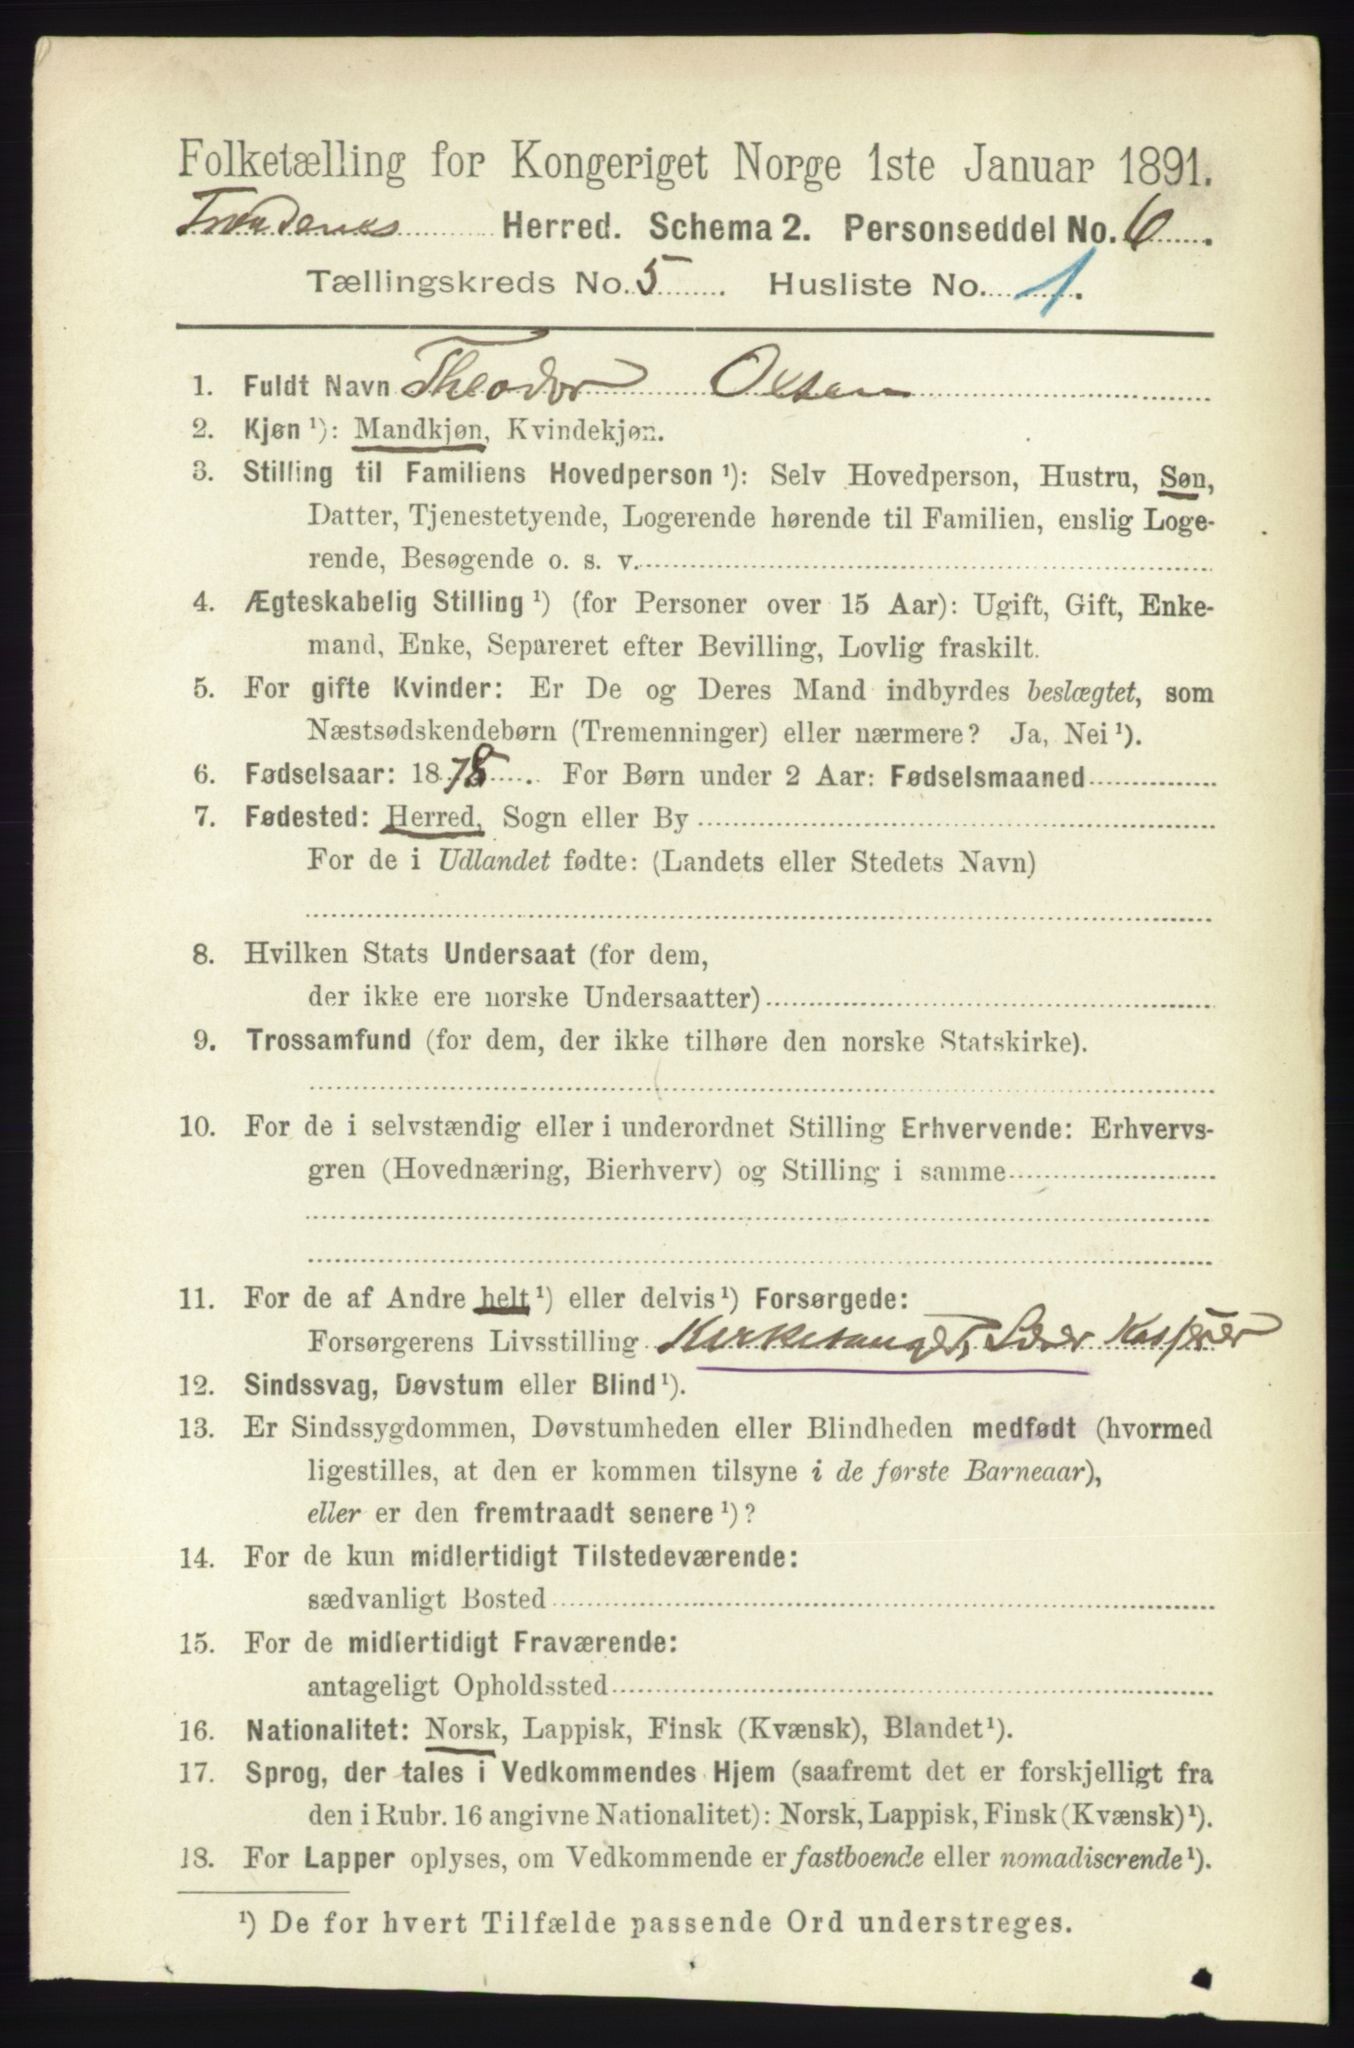 Folketælling for Kongeriget Norge 1ste Januar 1891.
Trondenes Herred. Schema 2. Personseddel No. 6
Tællingskreds No. 5. Husliste No. 1.
1. Fuldt Navn Theodor Olsen
2. Kjøn ¹): Mandkjøn, Kvindekjøn.
3. Stilling til Familiens Hovedperson ¹): Selv Hovedperson, Hustru, Søn,
Datter, Tjenestetyende, Logerende hørende til Familien, enslig Loge-
rende, Besøgende o. s. v.
4. Ægteskabelig Stilling ¹) (for Personer over 15 Aar): Ugift, Gift, Enke-
mand, Enke, Separeret efter Bevilling, Lovlig fraskilt.
5. For gifte Kvinder: Er De og Deres Mand indbyrdes beslægtet, som
Næstsødskendebørn (Tremenninger) eller nærmere? Ja, Nei ¹).
6. Fødselsaar: 1878. For Børn under 2 Aar: Fødselsmaaned
7. Fødested: Herred, Sogn eller By
For de i Udlandet fødte: (Landets eller Stedets Navn)
8. Hvilken Stats Undersaat (for dem,
der ikke ere norske Undersaatter)
9. Trossamfund (for dem, der ikke tilhøre den norske Statskirke).
10. For de i selvstændig eller i underordnet Stilling Erhvervende: Erhvervs-
gren (Hovednæring, Bierhverv) og Stilling i samme
11. For de af Andre helt ¹) eller delvis ¹) Forsørgede:
Forsørgerens Livsstilling Kirkesanger, Lærer Kasserer
12. Sindssvag, Døvstum eller Blind ¹).
13. Er Sindssygdommen, Døvstumheden eller Blindheden medfødt (hvormed
ligestilles, at den er kommen tilsyne i de første Barneaar),
eller er den fremtraadt senere ¹)?
14. For de kun midlertidigt Tilstedeværende:
sædvanligt Bosted
15. For de midlertidigt Fraværende:
antageligt Opholdssted
16. Nationalitet: Norsk, Lappisk, Finsk (Kvænsk), Blandet ¹).
17. Sprog, der tales i Vedkommendes Hjem (saafremt det er forskjelligt fra
den i Rubr. 16 angivne Nationalitet): Norsk, Lappisk, Finsk (Kvænsk) ¹).
18. For Lapper oplyses, om Vedkommende er fastboende eller nomadiserende ¹).
¹) De for hvert Tilfælde passende Ord understreges.